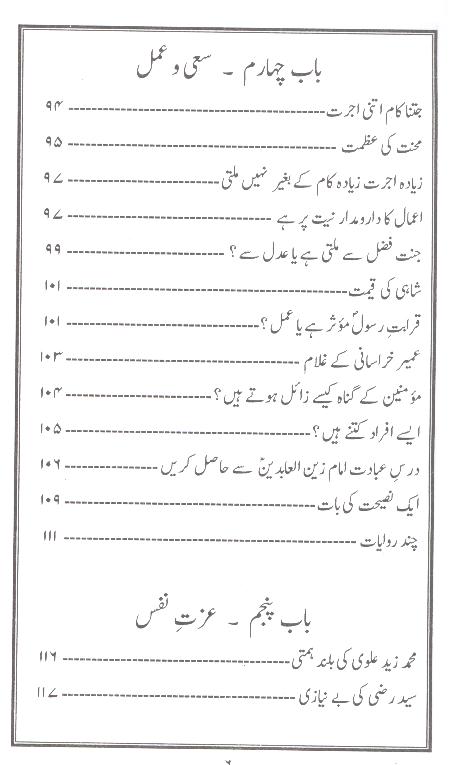 باب چہارم ۔ سعی و عمل
جتنا کام اتنی اجرت ---------- ۹۴
محنت کی عظمت ---------- ۹۵
زیادہ اجرت زیادہ کام کے بغیر نہیں ملتی ---------- ۹۷
اعمال کا دارومدار نیت پر ہے ---------- ۹۷
جنت فضل سے ملتی ہے یا عدل سے؟ ---------- ۹۹
شاہی کی قیمت ---------- ۱۰۱
قرابتِ رسولؐ مؤثر ہے یا عمل؟ ---------- ۱۰۱
عمیر خراسانی کے غلام ---------- ۱۰۳
مؤمنین کے گناہ کیسے زائل ہوتے ہیں؟ ---------- ۱۰۴
ایسے افراد کتنے ہیں؟ ---------- ۱۰۵
درسِ عبادت امام زین العابدینؑ سے حاصل کریں ---------- ۱۰۶
ایک نصیحت کی بات ---------- ۱۰۹
چند روایات ---------- ۱۱۱
باب پنجم ۔ عزتِ نفس
محمد زید علوی کی بلند ہمتی ---------- ۱۱۶
سید رضی کی بے نیازی ---------- ۱۱۷